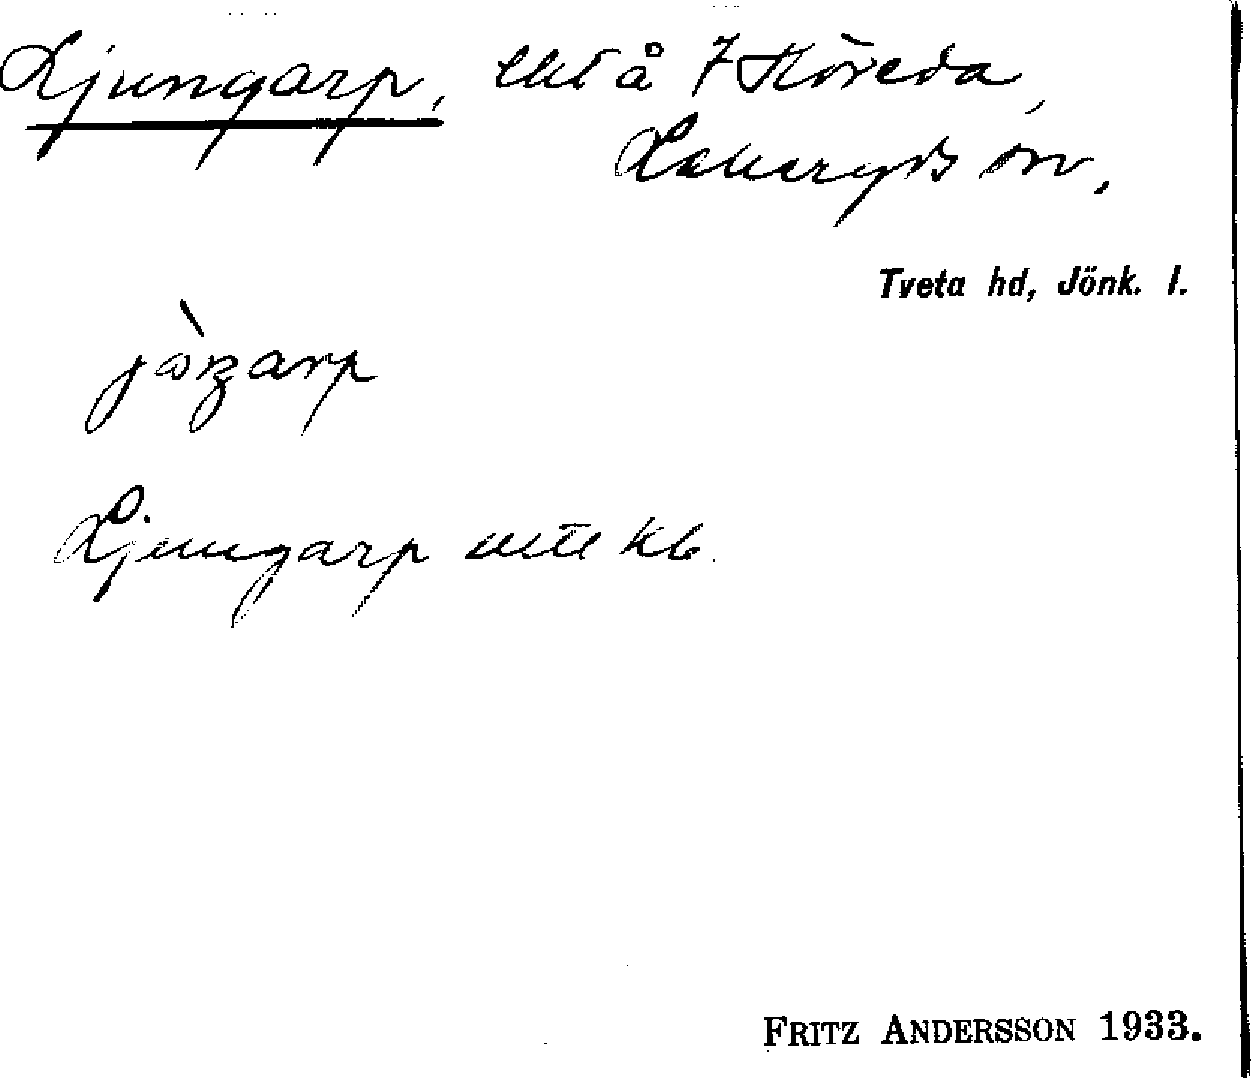 Ljungarp, utj å 7 Sköveda,
Lekeryds sn,
Tveta hd, Jönk. l.
Ljungarp utt kb.
FRITZ ANDERSSON 1933.